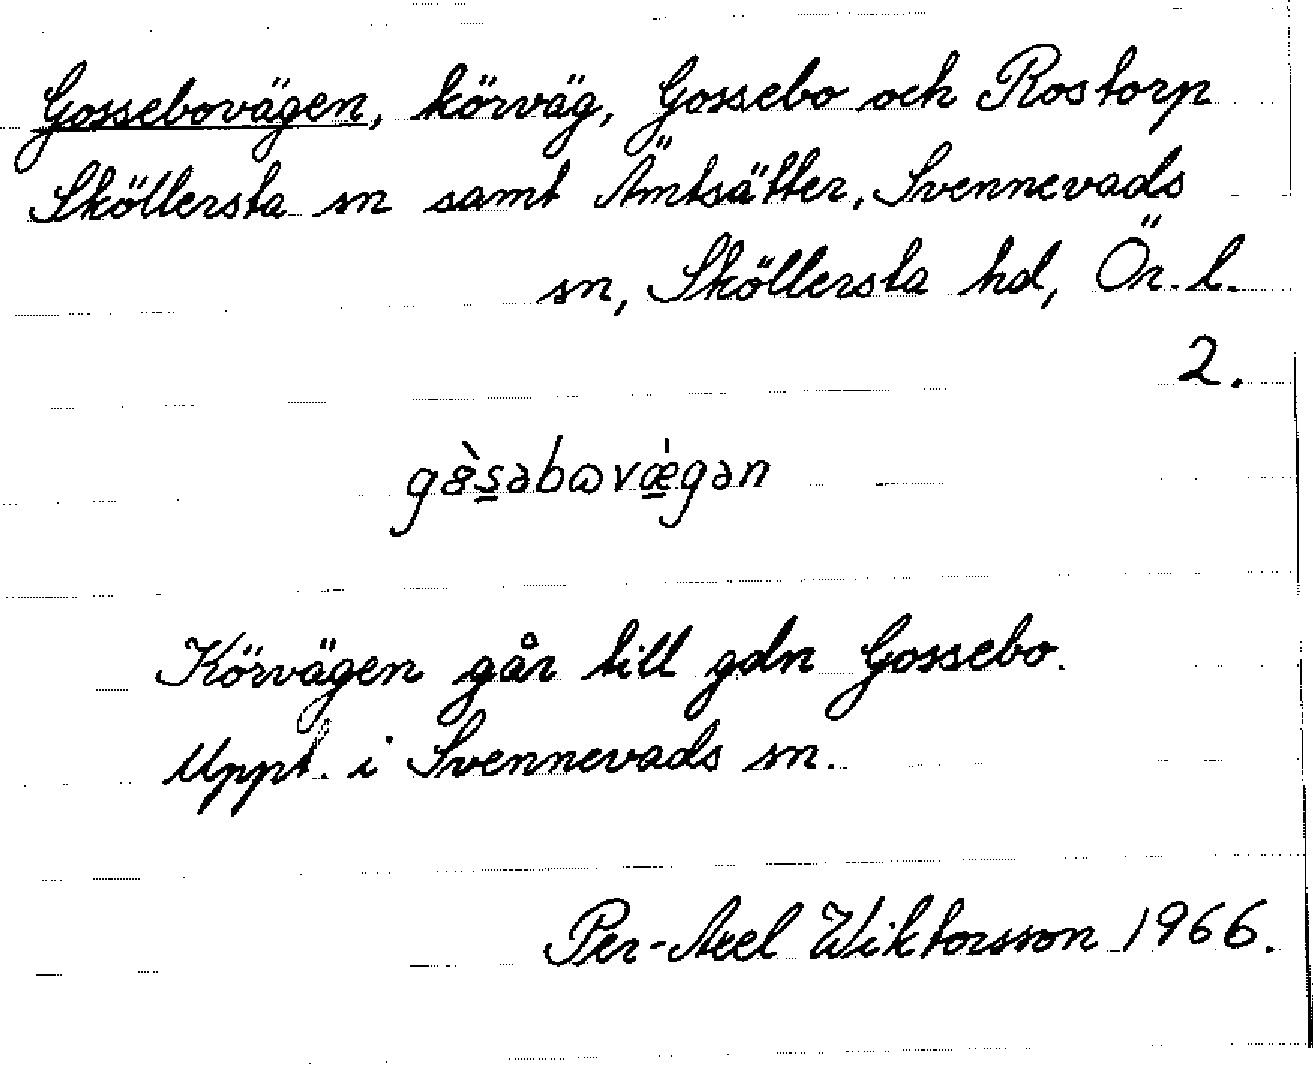 Gossebovägen, körväg, Gossebo och Rostorp
Sköllersta sn samt Ämtsätter, Svennevads
sn, Sköllersta hd, Ör. l.
2.
gȣ̀s̲əbωvæ̲̀gən
Körvägen går till gdn Gossebo.
Uppt. i Svennevads sn.
Per-Axel Wiktorsson 1966.